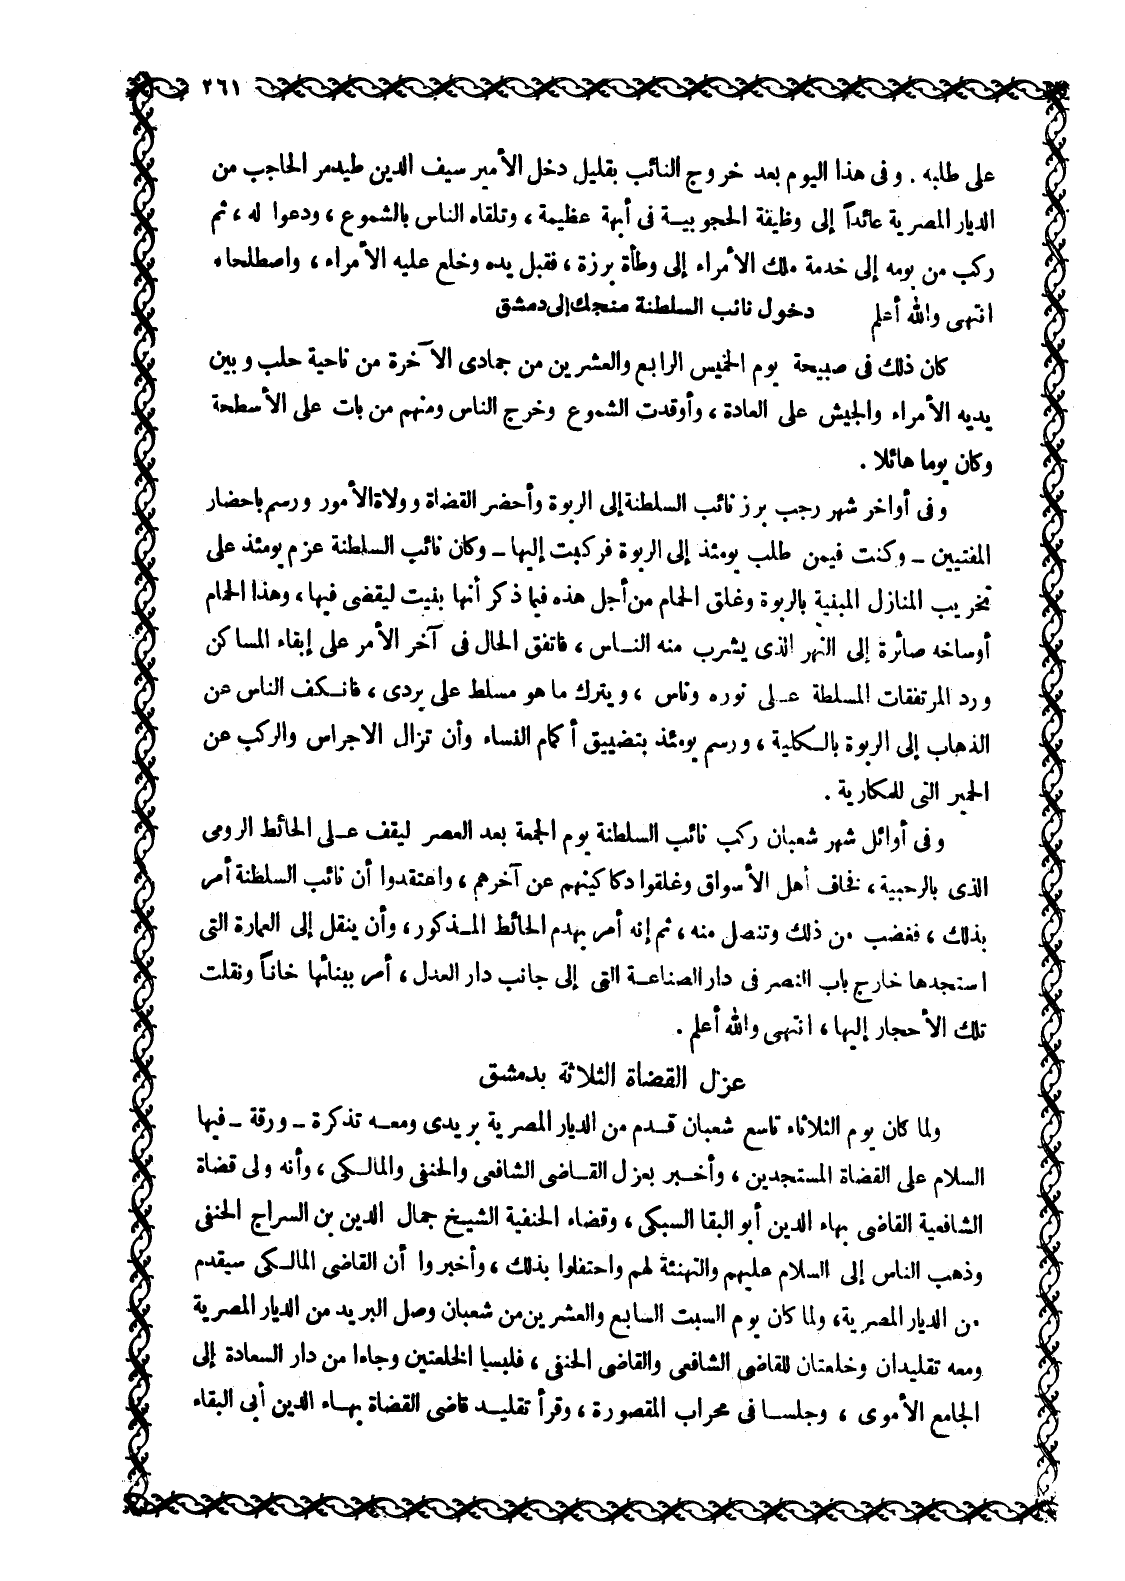 ٢٦١
على طلبه . وفى هذا اليوم بعد خروج النائب بقليل دخل الأمير سيف الدين طيدمر الحاجب من
الديار المصرية عائداً إلى وظيفة الحجوبية فى أبهة عظيمة ، وتلقاه الناس بالشموع ، ودعوا له ، ثم
ركب من يومه إلى خدمة ملك الأمراء إلى وطأة برزة ، فقبل يده وخلع عليه الأمراء ، واصطلحاء
انتهى والله أعلم دخول نائب السلطنة منجك إلى دمشق
كان ذلك فى صبيحة يوم الخميس الرابع والعشرين من جمادى الآخرة من ناحية حلب وبين
يديه الأمراء والجيش على العادة ، وأوقدت الشموع وخرج الناس ومنهم من بات على الأسطحة
وكان يوما هائلا .
وفى أواخر شهر رجب برز نائب السلطنة إلى الربوة وأحضر القضاة وولاة الأمور ورسم باحضار
المفتيين ـ وكنت فيمن طلب يومئذ إلى الربوة فركبت إليها ـ وكان نائب السلطنة عزم يومئذ على
تخريب المنازل المبنية بالربوة وغلق الحمام من أجل هذه فيما ذكر أنها بنيت ليقضى فيها ، وهذا الحمام
أوساخه صائرة إلى النهر الذى يشرب منه الناس ، فاتفق الحال فى آخر الأمر على إبقاء المساكن
ورد المرتفقات المسلطة على توره وناس ، ويترك ما هو مسلط على بردى ، فانكف الناس عن
الذهاب إلى الربوة بالكلية ، ورسم يومئذ بتضييق أكمام النساء وأن تزال الاجراس والركب عن
الحمير التى للمكارية .
وفى أوائل شهر شعبان ركب نائب السلطنة يوم الجمعة بعد العصر ليقف على الحائط الرومى
الذى بالرحبية ، فخاف أهل الأسواق وغلقوا دكاكينهم عن آخرهم ، واعتقدوا أن نائب السلطنة أمر
بذلك ، فغضب من ذلك وتنصل منه ، ثم إنه أمر بهدم الحائط المذكور ، وأن ينقل إلى العمارة التى
استجدها خارج باب النصر فى دار الصناعة التى إلى جانب دار العدل ، أمر ببنائها خاناً ونقلت
تلك الأحجار إليها ، انتهى والله أعلم .
عزل القضاة الثلاثة بدمشق
ولما كان يوم الثلاثاء تاسع شعبان قدم من الديار المصرية بريدى ومعه تذكرة ـ ورقة ـ فيها
السلام على القضاة المستجدين ، وأخبر بعزل القاضى الشافعى والحنفى والمالكى ، وأنه ولى قضاة
الشافعية القاضى بهاء الدين أبو البقا السبكى ، وقضاء الحنفية الشيخ جمال الدين بن السراج الحنفى
وذهب الناس إلى السلام عليهم والتهنئة لهم واحتفلوا بذلك ، وأخبروا أن القاضى المالكى سيقدم
من الديار المصرية ، ولما كان يوم السبت السابع والعشرين من شعبان وصل البريد من الديار المصرية
ومعه تقليدان وخلعتان للقاضى الشافعى والقاضى الحنفى ، فلبسا الخلعتين وجاءا من دار السعادة إلى
الجامع الأموى ، وجلسا فى محراب المقصورة ، وقرأ تقليد قاضى القضاة بهاء الدين أبى البقاء